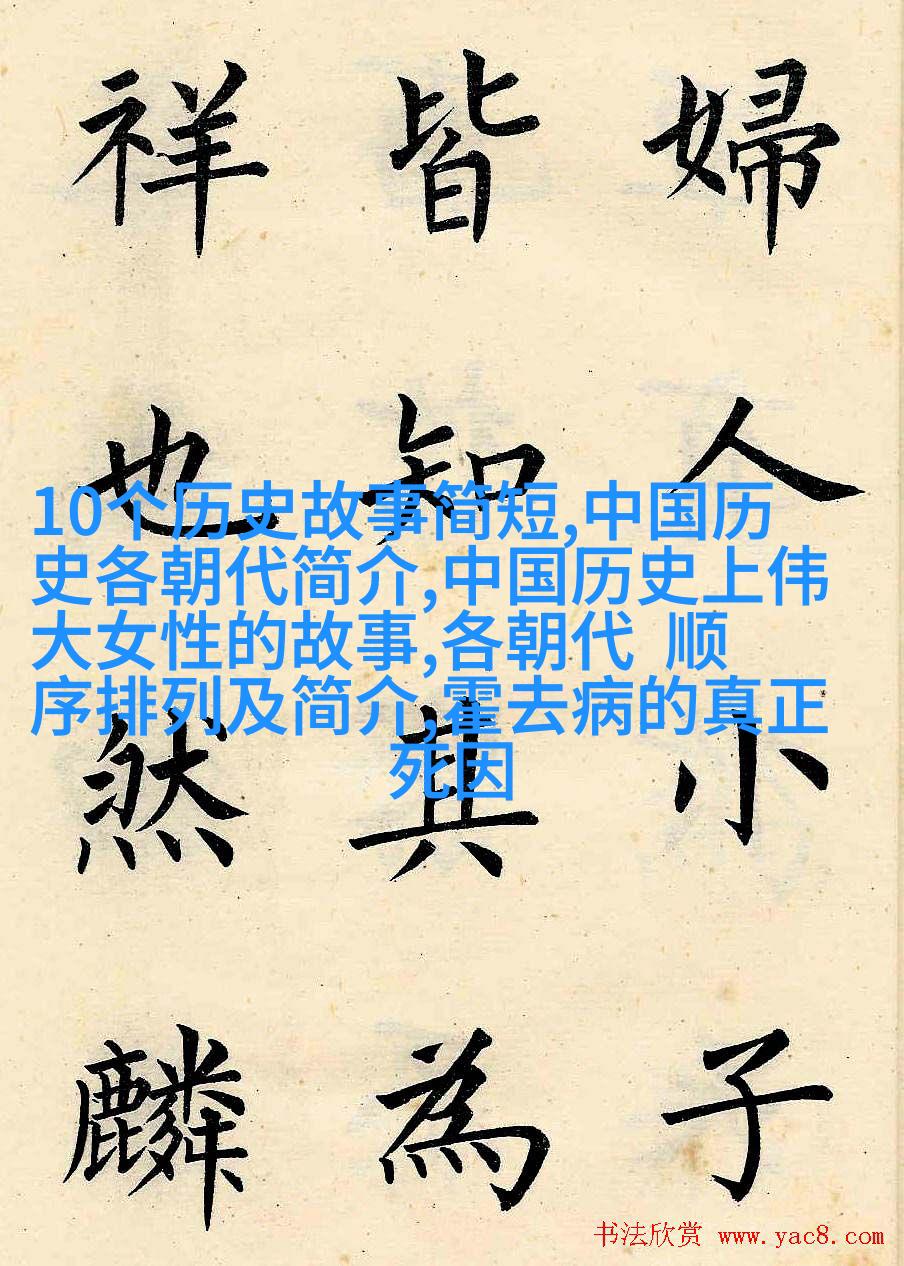 婦人小子
皆知其為
祥也然麟
10个历史故事简短,中国历
史各朝代简介,中国历史上伟
大女性的故事,各朝代 顺
序排列及简介,霍去病的真正
死因
书法欣赏 www.yac8.com